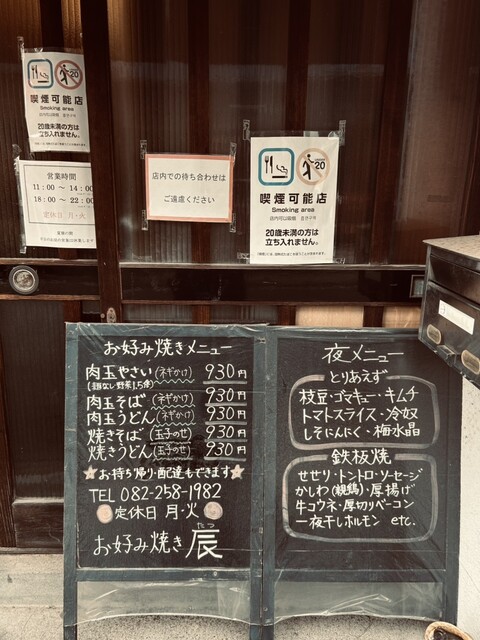 20
喫煙可能店
Smoking area
20歳未満の方は
立ち入れません。
営業時間
11:00 〜 14:00
18:00 〜 22:00
定休日 月・火
店内での待ち合わせは
ご遠慮ください
20
喫煙可能店
Smoking area
20歳未満の方は
立ち入れません。
お好み焼きメニュー
肉玉やさい(ネギかけ) 930円
(麺なし野菜1.5倍)
肉玉そば(ネギかけ) 930円
肉玉うどん(ネギかけ) 930円
焼きそば(玉子のせ) 930円
焼きうどん(玉子のせ) 930円
★お持ち帰り・配達もできます★
TEL 082-258-1982
定休日 月・火
お好み焼き 辰
たつ
夜メニュー
とりあえず
枝豆・ゴマキュー・キムチ
トマトスライス・冷奴
しそにんにく・梅水晶
鉄板焼
せせり・トントロ・ソーセージ
かしわ(親鶏)・厚揚げ
牛コウネ・厚切りベーコン
一夜干しホルモン etc.